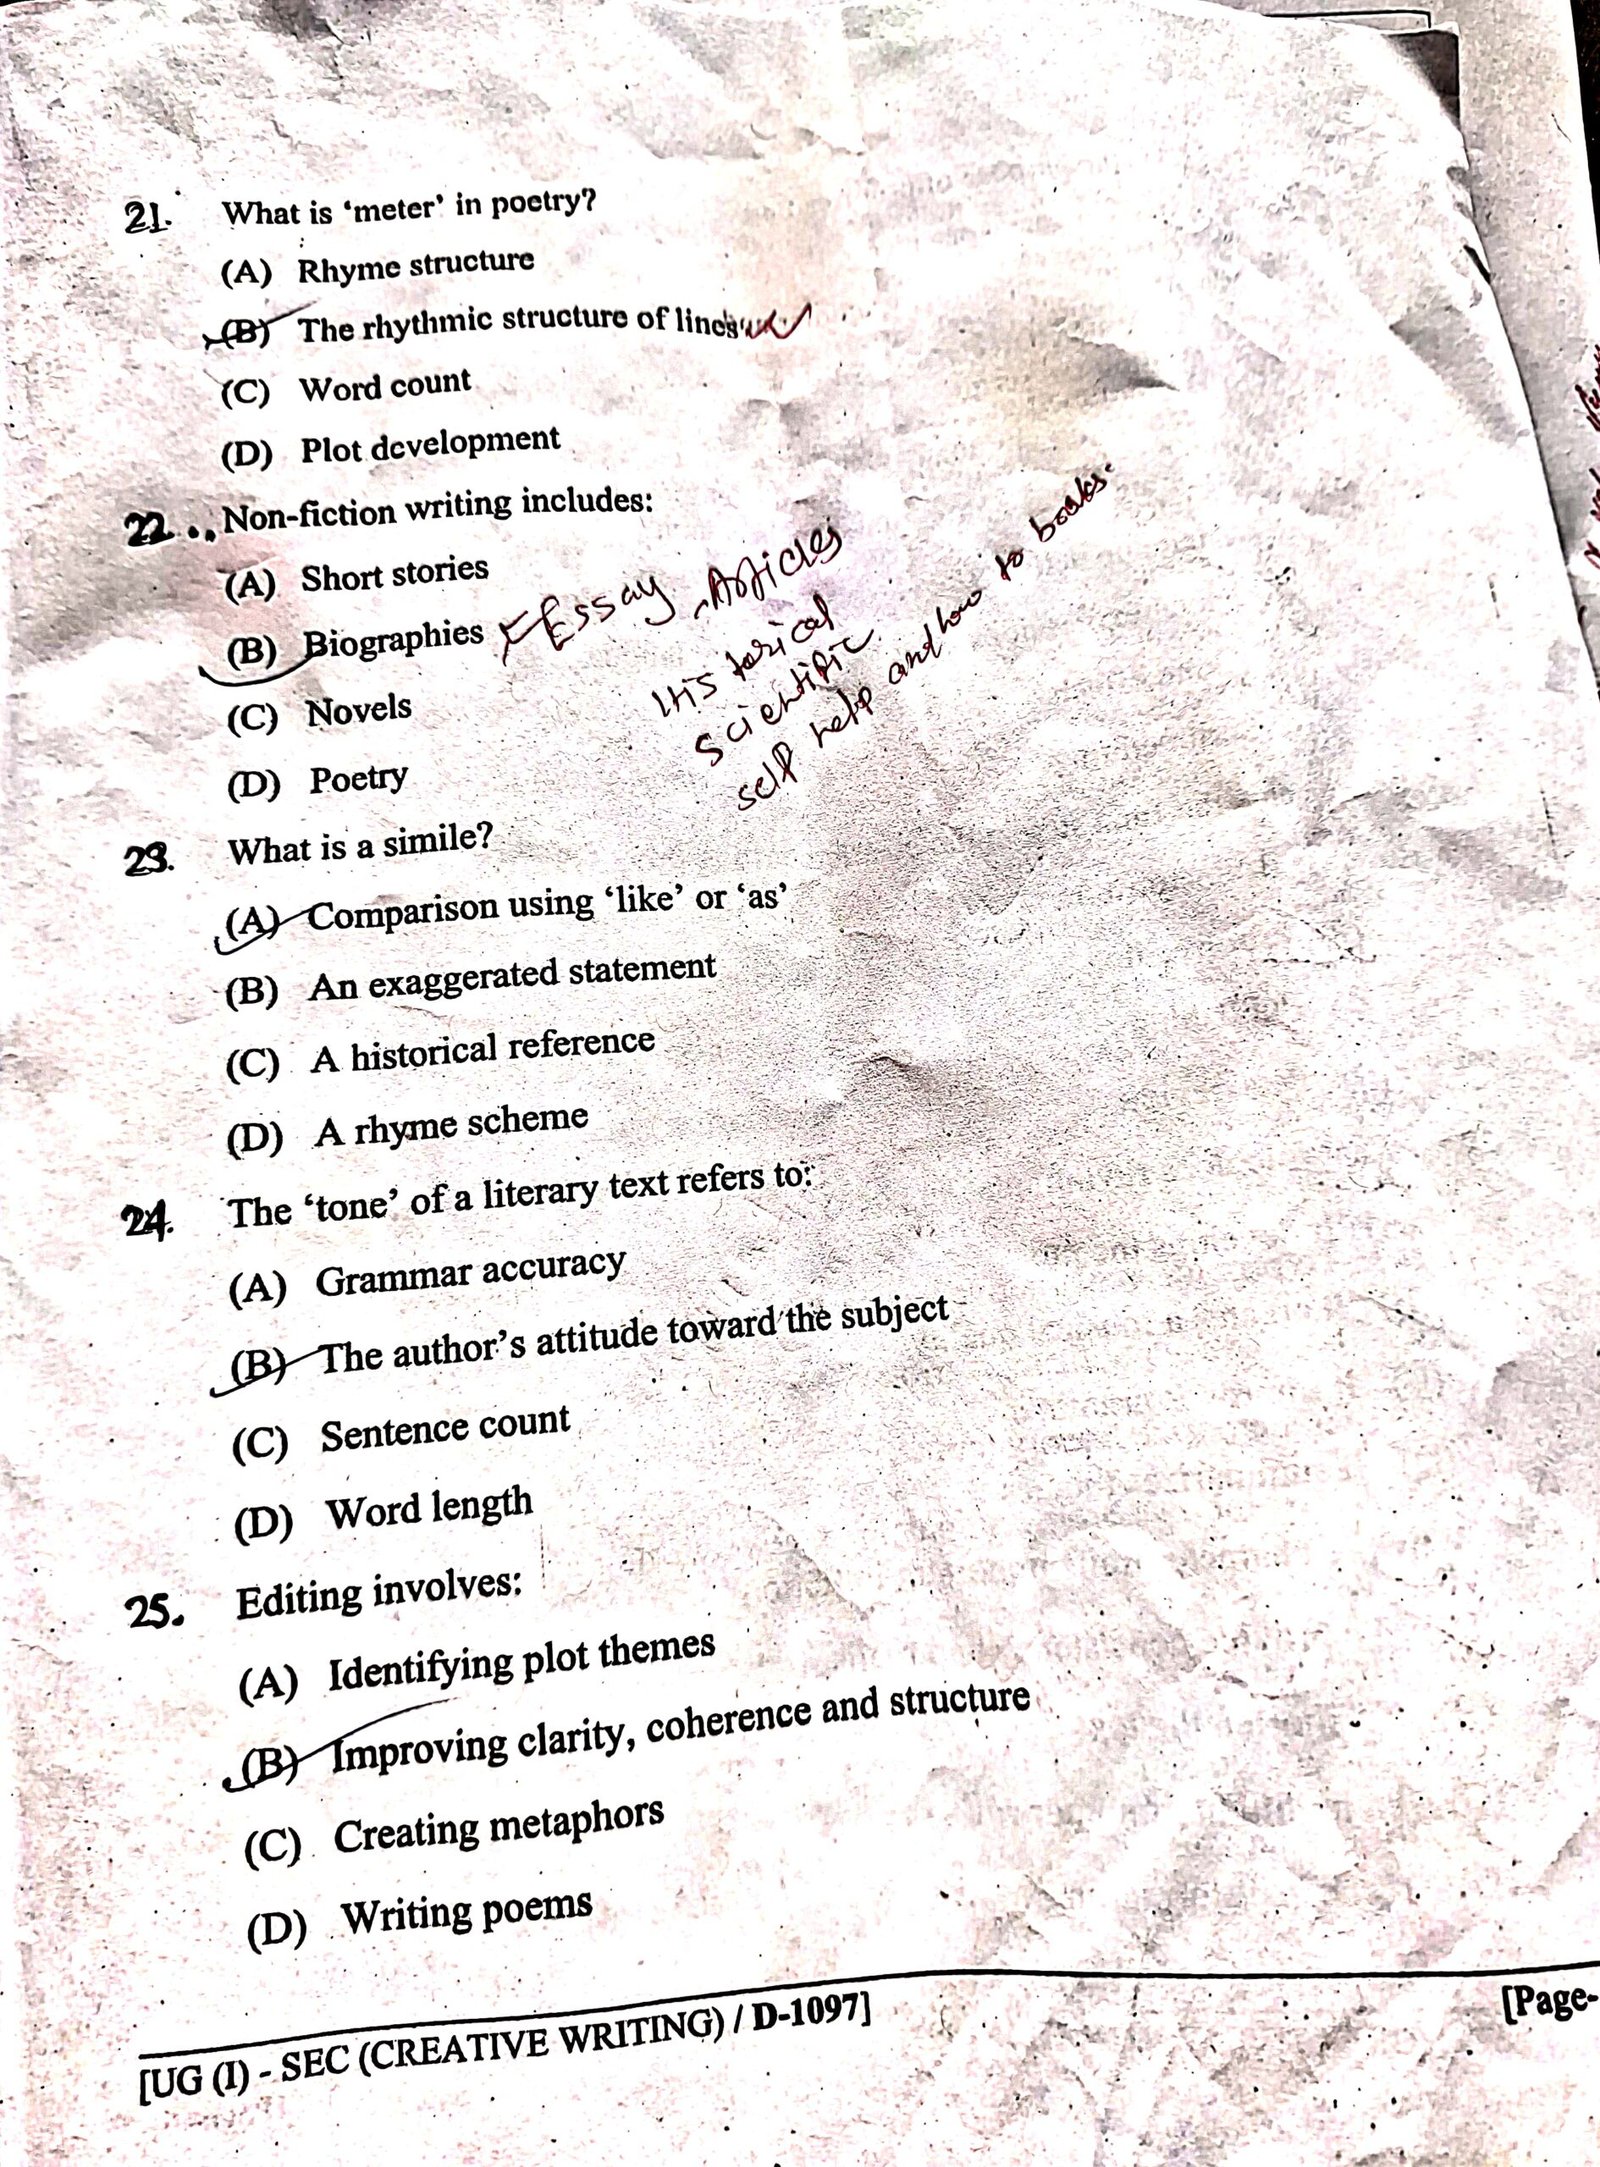 21. What is ‘meter’ in poetry?
(A) Rhyme structure
(B) The rhythmic structure of lines
(C) Word count
(D) Plot development
22. Non-fiction writing includes:
(A) Short stories
(B) Biographies Essay, Articles
Historical
Scientific
self help and how to books.
(C) Novels
(D) Poetry
23. What is a simile?
(A) Comparison using ‘like’ or ‘as’
(B) An exaggerated statement
(C) A historical reference
(D) A rhyme scheme
24. The ‘tone’ of a literary text refers to:
(A) Grammar accuracy
(B) The author’s attitude toward the subject
(C) Sentence count
(D) Word length
25. Editing involves:
(A) Identifying plot themes
(B) Improving clarity, coherence and structure
(C) Creating metaphors
(D) Writing poems
[UG (I) - SEC (CREATIVE WRITING) / D-1097]
[Page-